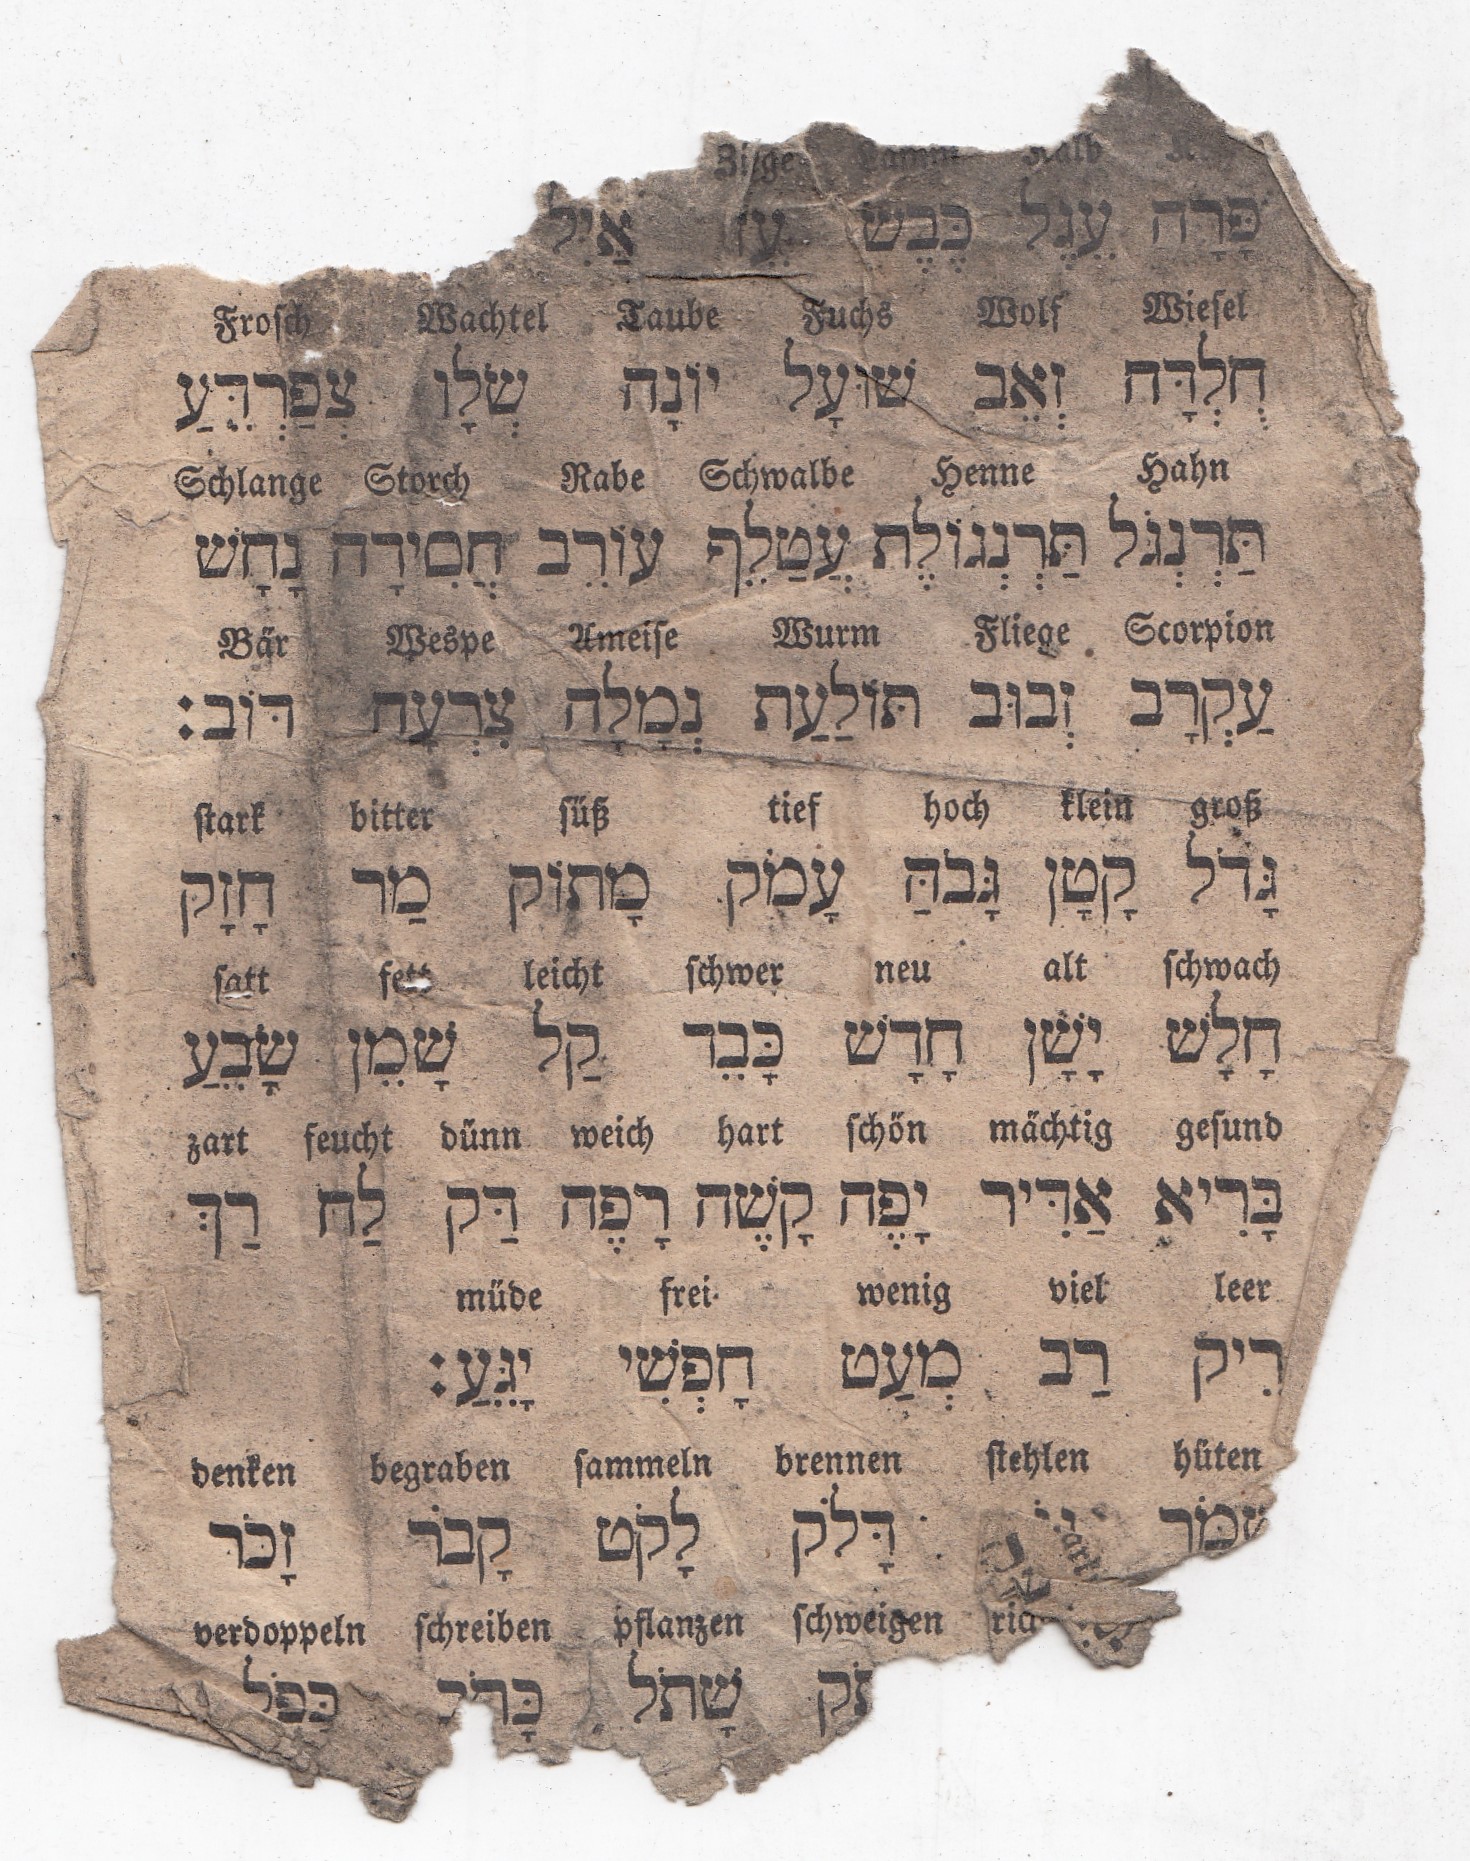 Ziege Lamm Kalb
פָּרָה עֵגֶל כֶּבֶשׂ עֵז אַיִל
Frosch Wachtel Taube Fuchs Wolf Wiesel
חֻלְדָּח זְאֵב שׁוּעָל יוֹנָה שְׂלָו צְפַרְדֵּעַ
Schlange Storch Rabe Schwalbe Henne Hahn
תַּרְנְגֹל תַּרְנְגוֹלֶת עֲטַלֵף עוֹרֵב חֲסִידָה נָחָשׁ
Bär Wespe Ameise Wurm Fliege Scorpion
עַקְרָב זְבוּב תּוֹלַעַת נְמָלָה צִרְעָה דּוֹב׃
stark bitter süß tief hoch klein groß
גָּדֹל קָטָן גָּבֹהַּ עָמֹק מָתוֹק מַר חָזָק
satt fett leicht schwer neu alt schwach
חָלָשׁ יָשָׁן חָדָשׁ כָּבֵד קַל שָׁמֵן שָׂבֵעַ
zart feucht dünn weich hart schön mächtig gesund
בָּרִיא אַדִּיר יָפֶה קָשֶׁה רָפֶה דַּק לַח רַךְ
müde frei wenig viel leer
רִיק רַב מְעַט חָפְשִׁי יָגֵעַ׃
denken begraben sammeln brennen stehlen hüten
שָׁמֹר דָּלֹק לָקֹט קָבֹר זָכֹר
verdoppeln schreiben pflanzen schweigen
שָׁתֹל כָּפֹל